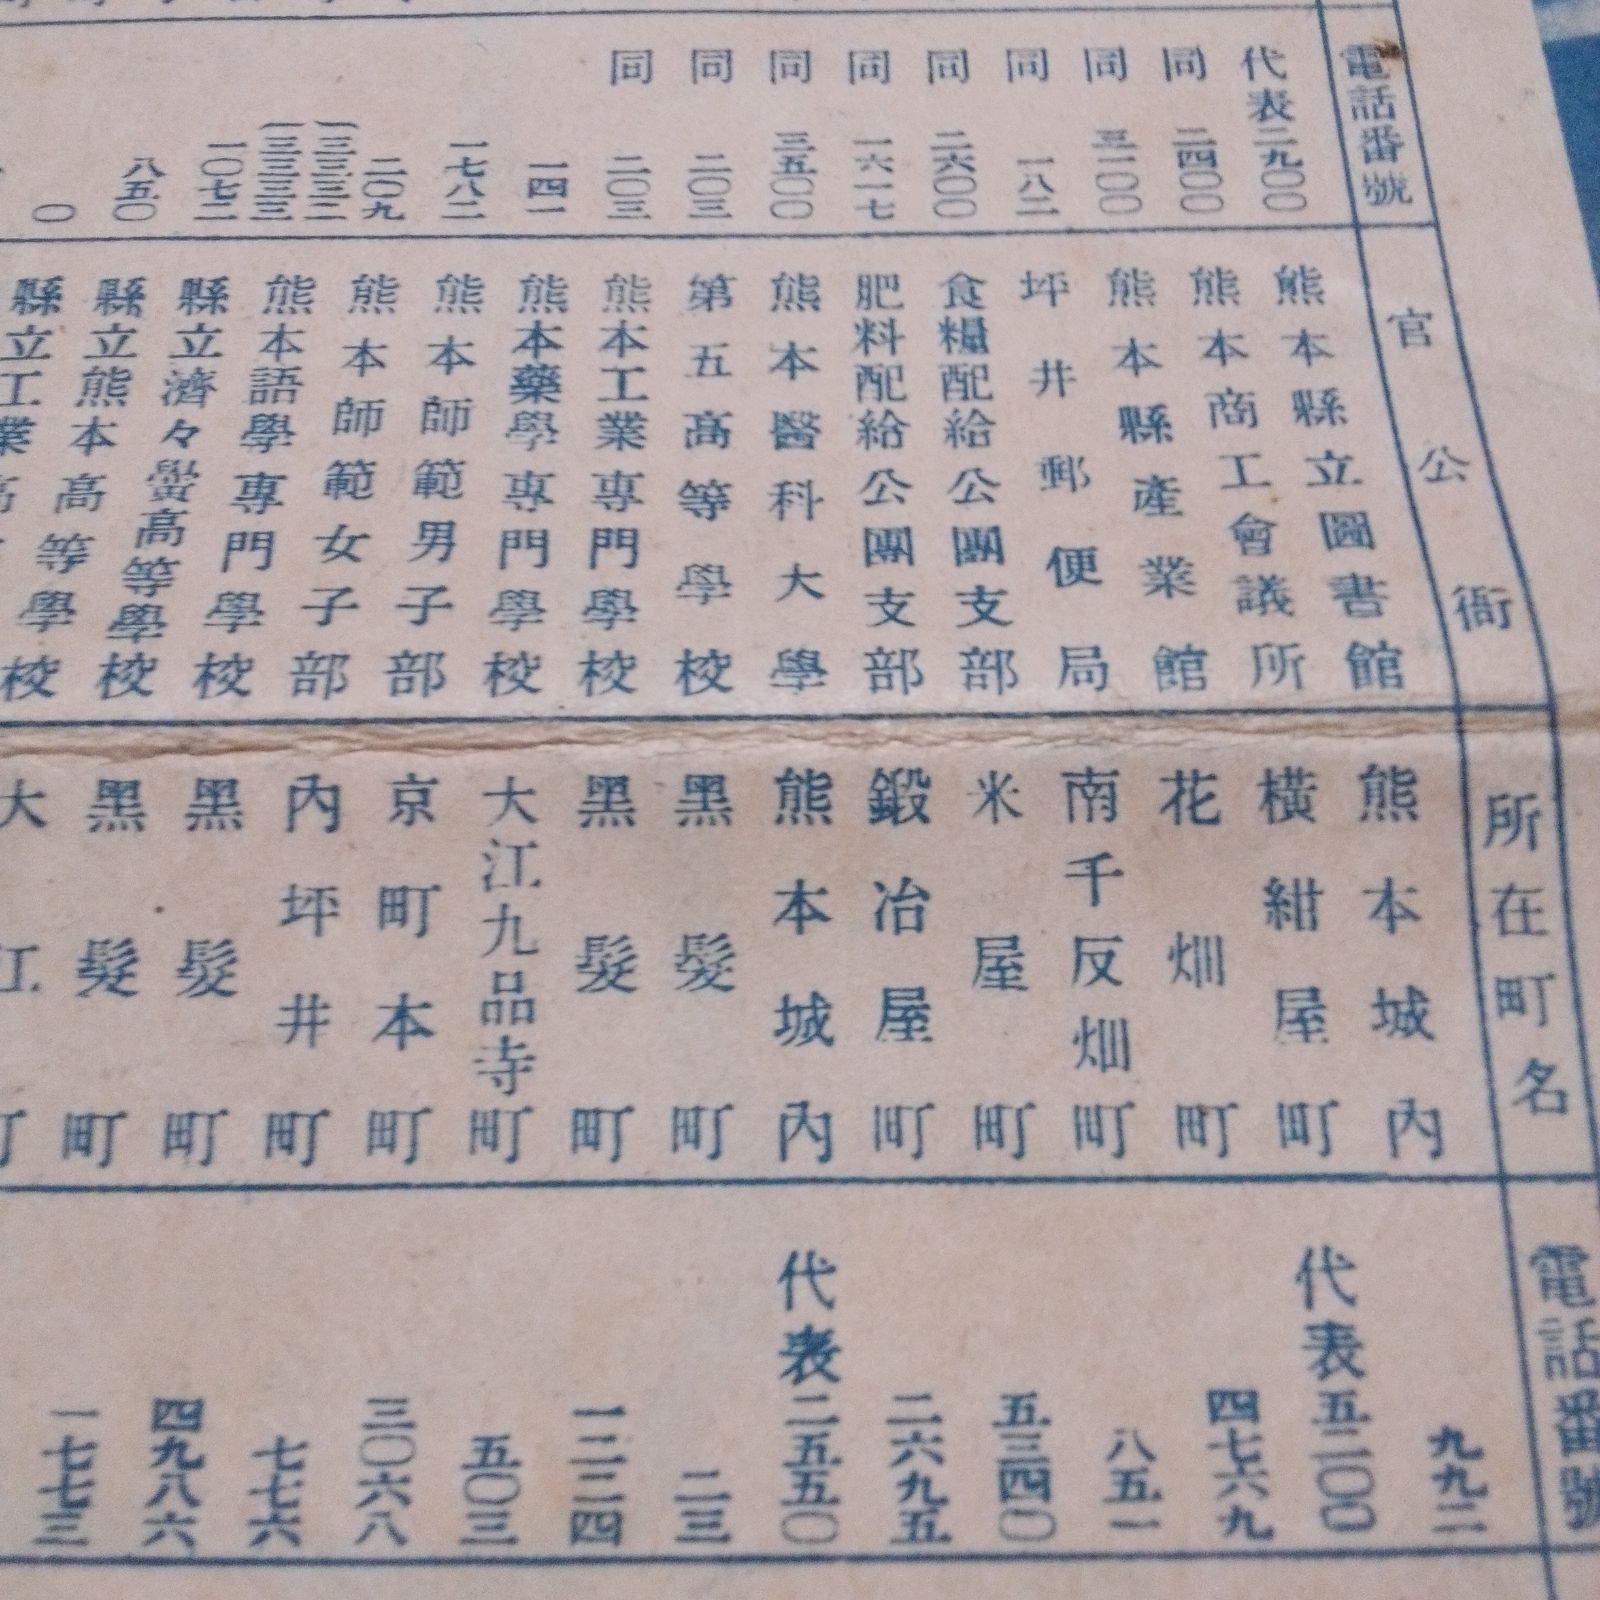 電話番號
代表二九〇〇
同 二四〇〇
同 三一〇〇
同 一八二
同 二六〇〇
同 一六一七
同 三五〇〇
同 二〇三
同 二〇三
一四一
一七八二
二〇九
(一三三二
(一三三三
一〇七二
八五〇
〇
官公衙 所在町名 電話番號
熊本縣立圖書館 熊本城內 九九二
熊本商工會議所 橫紺屋町 代表五二〇〇
熊本縣產業館 花畑町 四七六九
坪井郵便局 南千反畑町 八五一
食糧配給公團支部 米屋町 五三四〇
肥料配給公團支部 鍛冶屋町 二六九五
熊本醫科大學 熊本城內 代表二五五〇
第五高等學校 黑髮町 二三
熊本工業專門學校 黑髮町 一二二四
熊本藥學專門學校 大江九品寺町 五〇三
熊本師範男子部 京町本町 三〇六八
熊本師範女子部 內坪井町 七七六
熊本語學專門學校 黑髮町 四九八六
縣立濟々黌高等學校 黑髮町 一七七三
縣立熊本高等學校 大江町
縣立工業高等學校